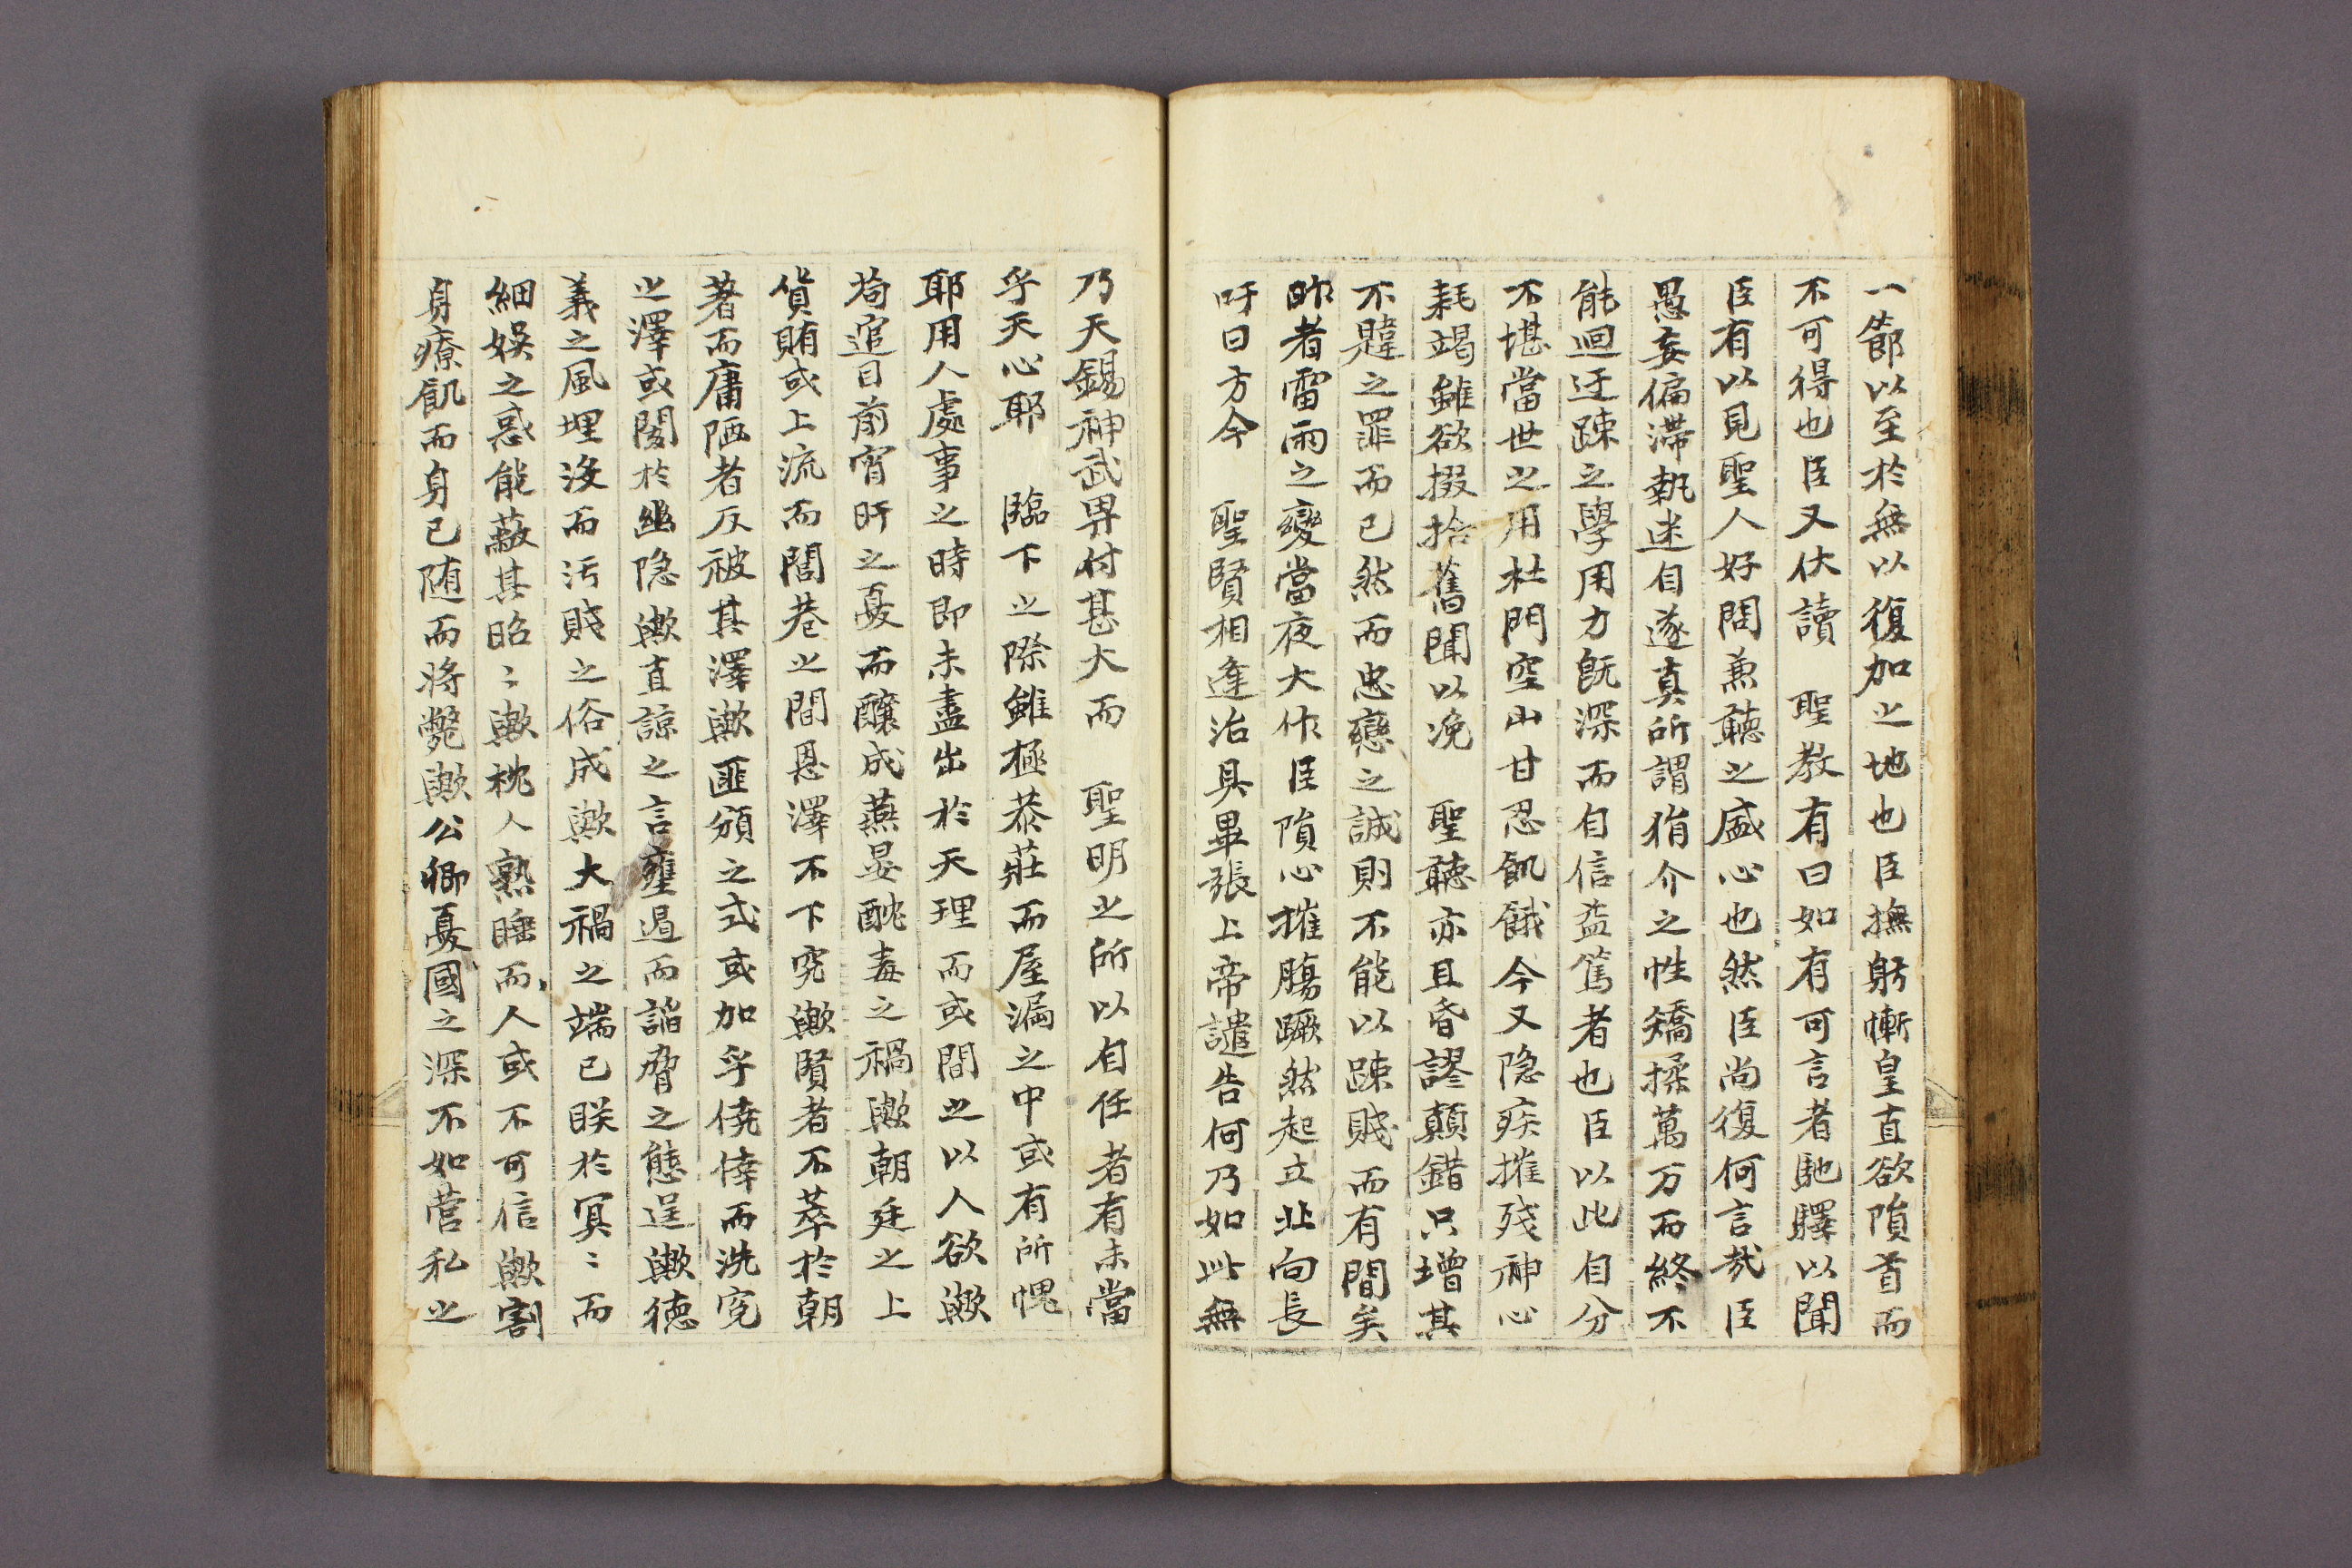 一節以至於無以復加之地也臣撫躬慚皇直欲隕首而
不可得也臣又伏讀　聖教有曰如有可言者馳驛以聞
臣有以見聖人好問兼聽之盛心也然臣尚復何言哉臣
愚妄偏滯執迷自遂真所謂狷介之性矯揉萬方而終不
能迴迂踈之學用力旣深而自信益篤者也臣以此自分
不堪當世之用杜門空山甘忍飢餓今又隐疾摧殘神心
耗竭雖欲掇拾舊聞以浼　聖聽亦且昏謬顛錯只增其
不韙之罪而已然而忠戀之誠則不能以踈賤而有間矣
昨者雷雨之變當夜大作臣隕心摧腸蹶然起立北向長
吁曰方今　聖賢相逢治具畢張上帝譴告何乃如此無
乃天錫神武畀付甚大而　聖明之所以自任者有未當
乎天心耶　臨下之際雖極恭莊而屋漏之中或有所愧
耶用人處事之時卽未盡出於天理而或間之以人欲歟
苟追目前宵旰之憂而釀成燕晏酖毒之禍歟朝廷之上
貨賄或上流而閭巷之間恩澤不下究歟賢者不萃於朝
著而庸陋者反被其澤歟匪頒之式或加乎僥倖而洗冤
之澤或閡於幽隐歟直諒之言壅遏而諂脅之態逞歟德
義之風埋沒而汚賤之俗成歟大禍之端已眹於冥〻而
細娛之惑能蔽其昭〻歟枕人熟睡而人或不可信歟割
身療飢而身已随而將斃歟公卿憂國之深不如营私之